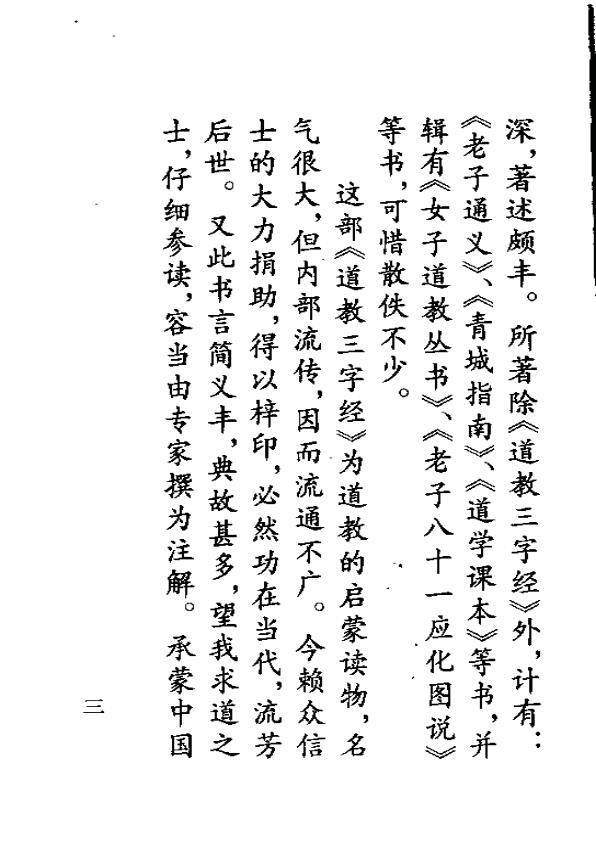 深，著述颇丰。所著除《道教三字经》外，计有：
《老子通义》、《青城指南》、《道学课本》等书，并
辑有《女子道教丛书》、《老子八十一应化图说》
等书，可惜散佚不少。
这部《道教三字经》为道教的启蒙读物，名
气很大，但内部流传，因而流通不广。今赖众信
士的大力捐助，得以梓印，必然功在当代，流芳
后世。又此书言简义丰，典故甚多，望我求道之
士，仔细参读，容当由专家撰为注解。承蒙中国
三